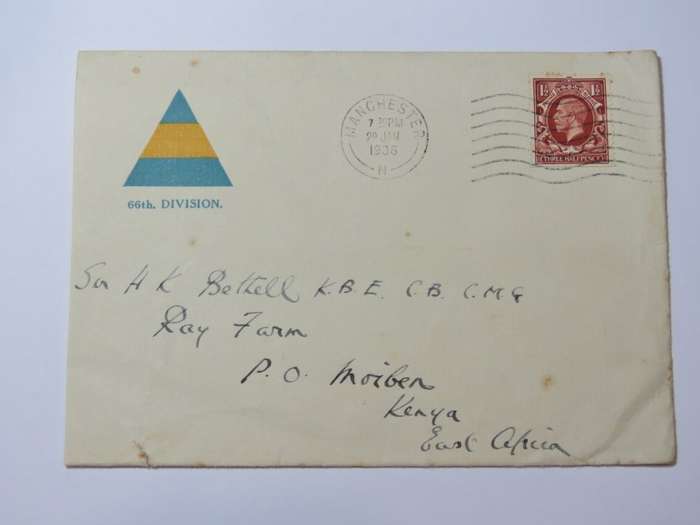 66th. DIVISION.
MANCHESTER
7 30 PM
29 JAN
1936
N
1½ 1½
THREE HALFPENCE
Sir H K Bethell K.B.E. C.B. C.M.G
Ray Farm
P.O. Moiben
Kenya
East Africa